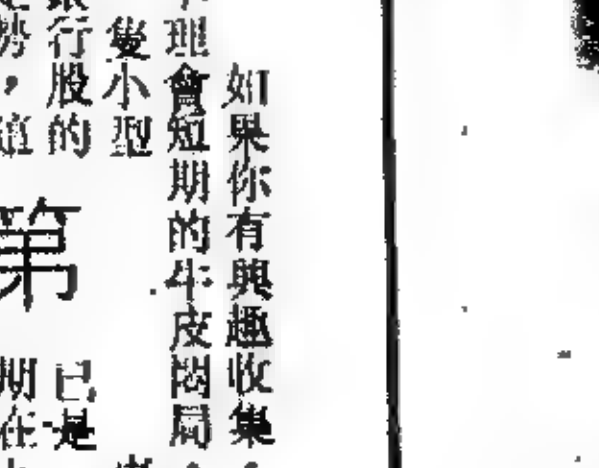 如果你有興趣收集
理會短期的牛皮悶局
變小型
行股的
第
已是
期在